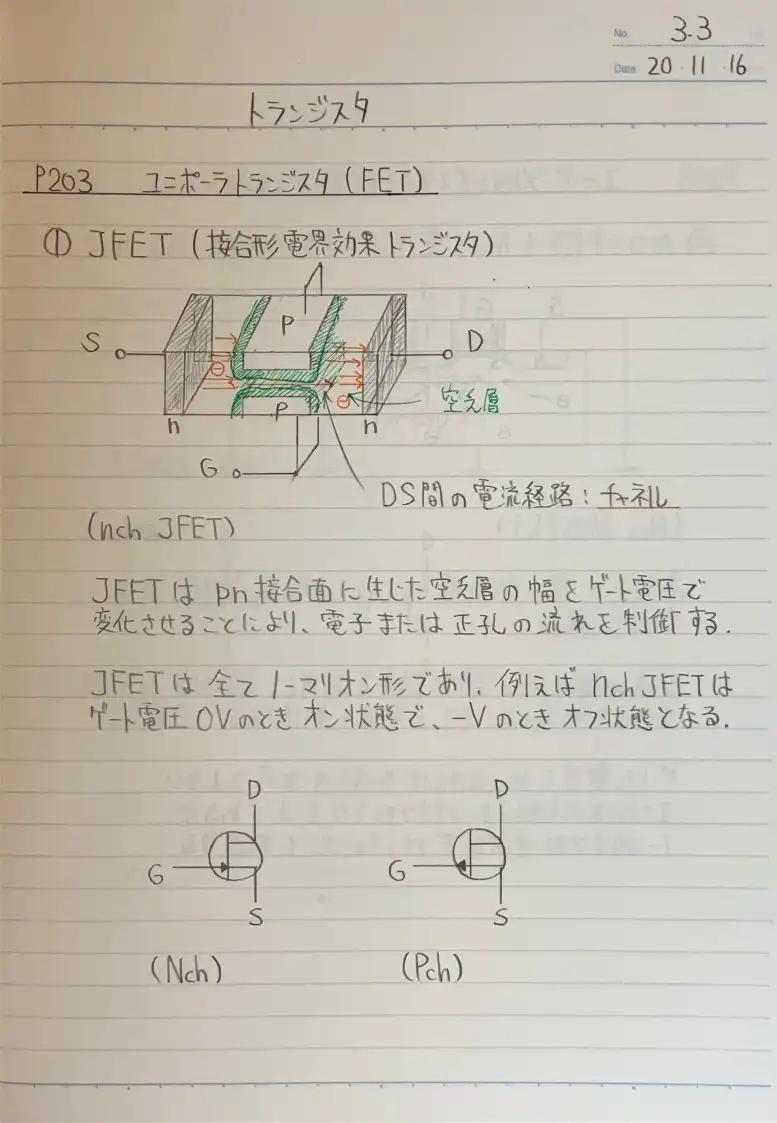 No. 3.3
Date 20・11・16
トランジスタ
P203 ユニポーラトランジスタ(FET)
① JFET (接合形電界効果トランジスタ)
P
S
D
⊖
⊖
空乏層
P
n
n
G
DS間の電流経路:チャネル
(nch JFET)
JFETは pn接合面に生じた空乏層の幅をゲート電圧で
変化させることにより、電子または正孔の流れを制御する.
JFETは全てノーマリオン形であり、例えば nch JFETは
ゲート電圧 0Vのとき オン状態で、-Vのとき オフ状態となる.
D
D
G
G
S
S
(Nch)
(Pch)